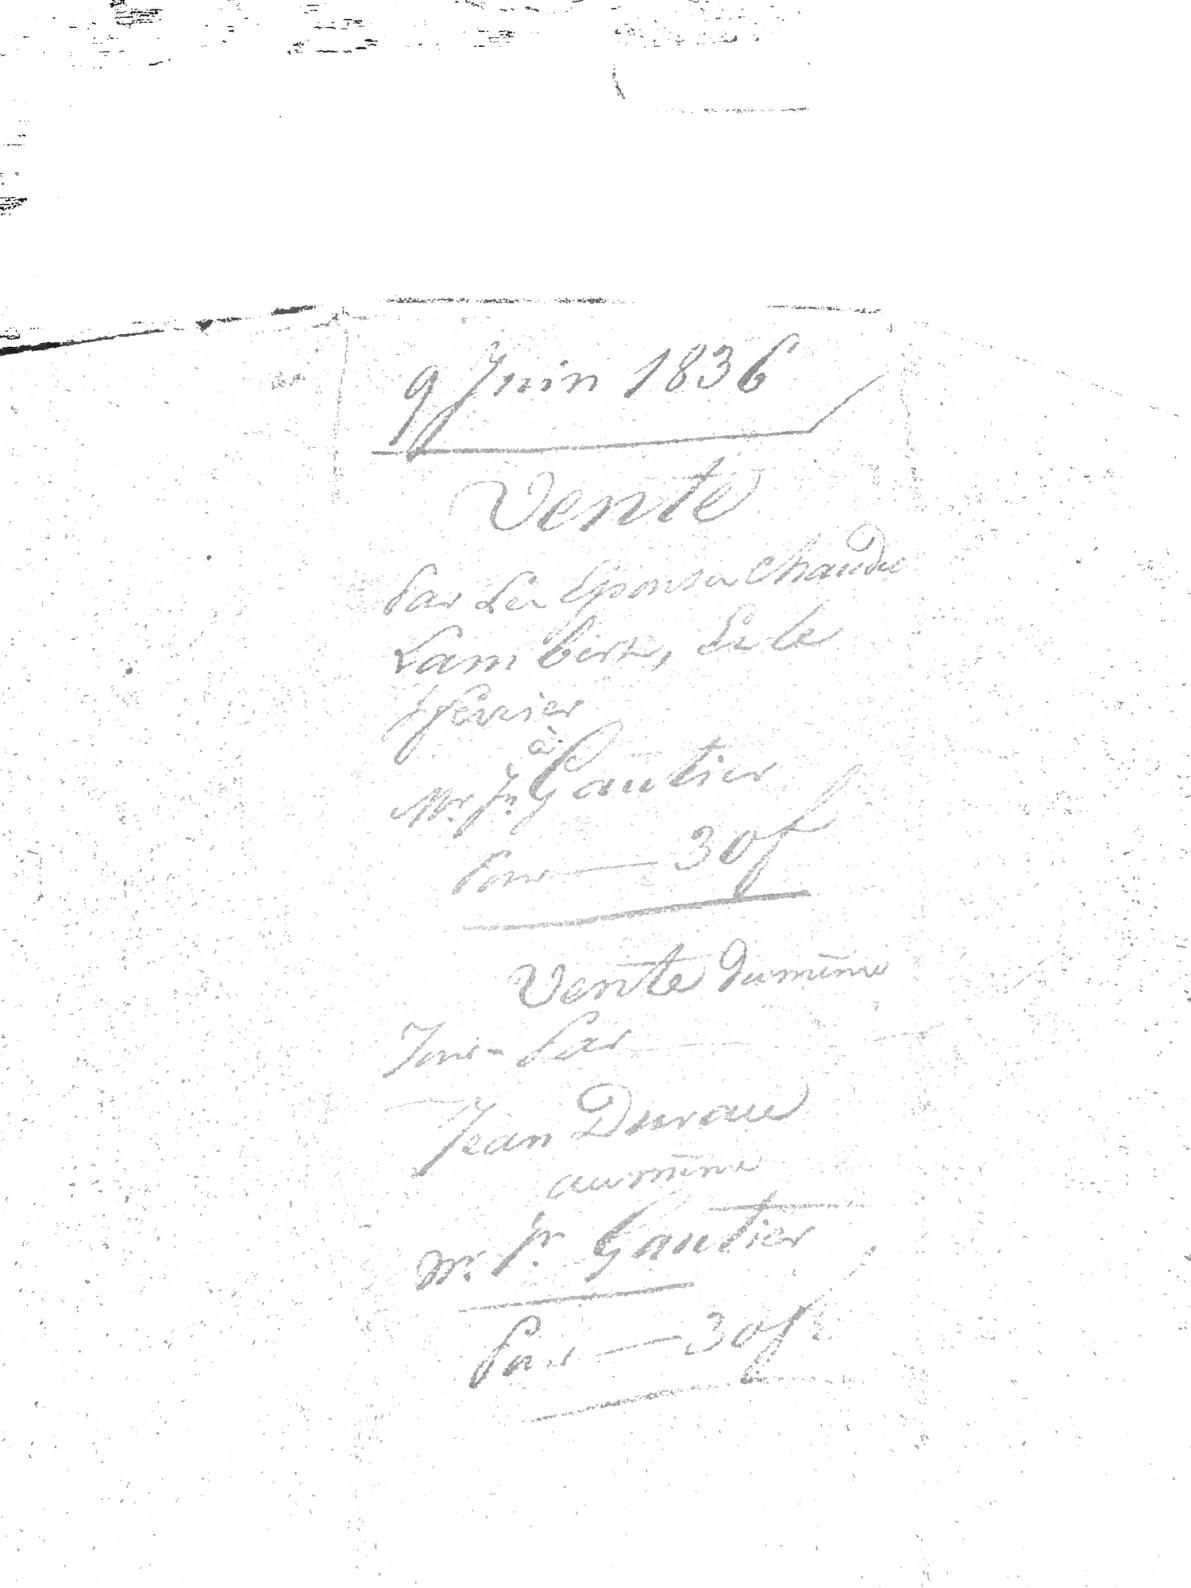 9 Juin 1836
Vente
Par Les Epoux Chaudu
Lambert, Et le
f fevrier
à
Mr. Jn. Gautier
Pour — 30f
Vente du même
Jour - Par
Jean Durau
au même
Mr. Jn. Gautier
Pour — 30f